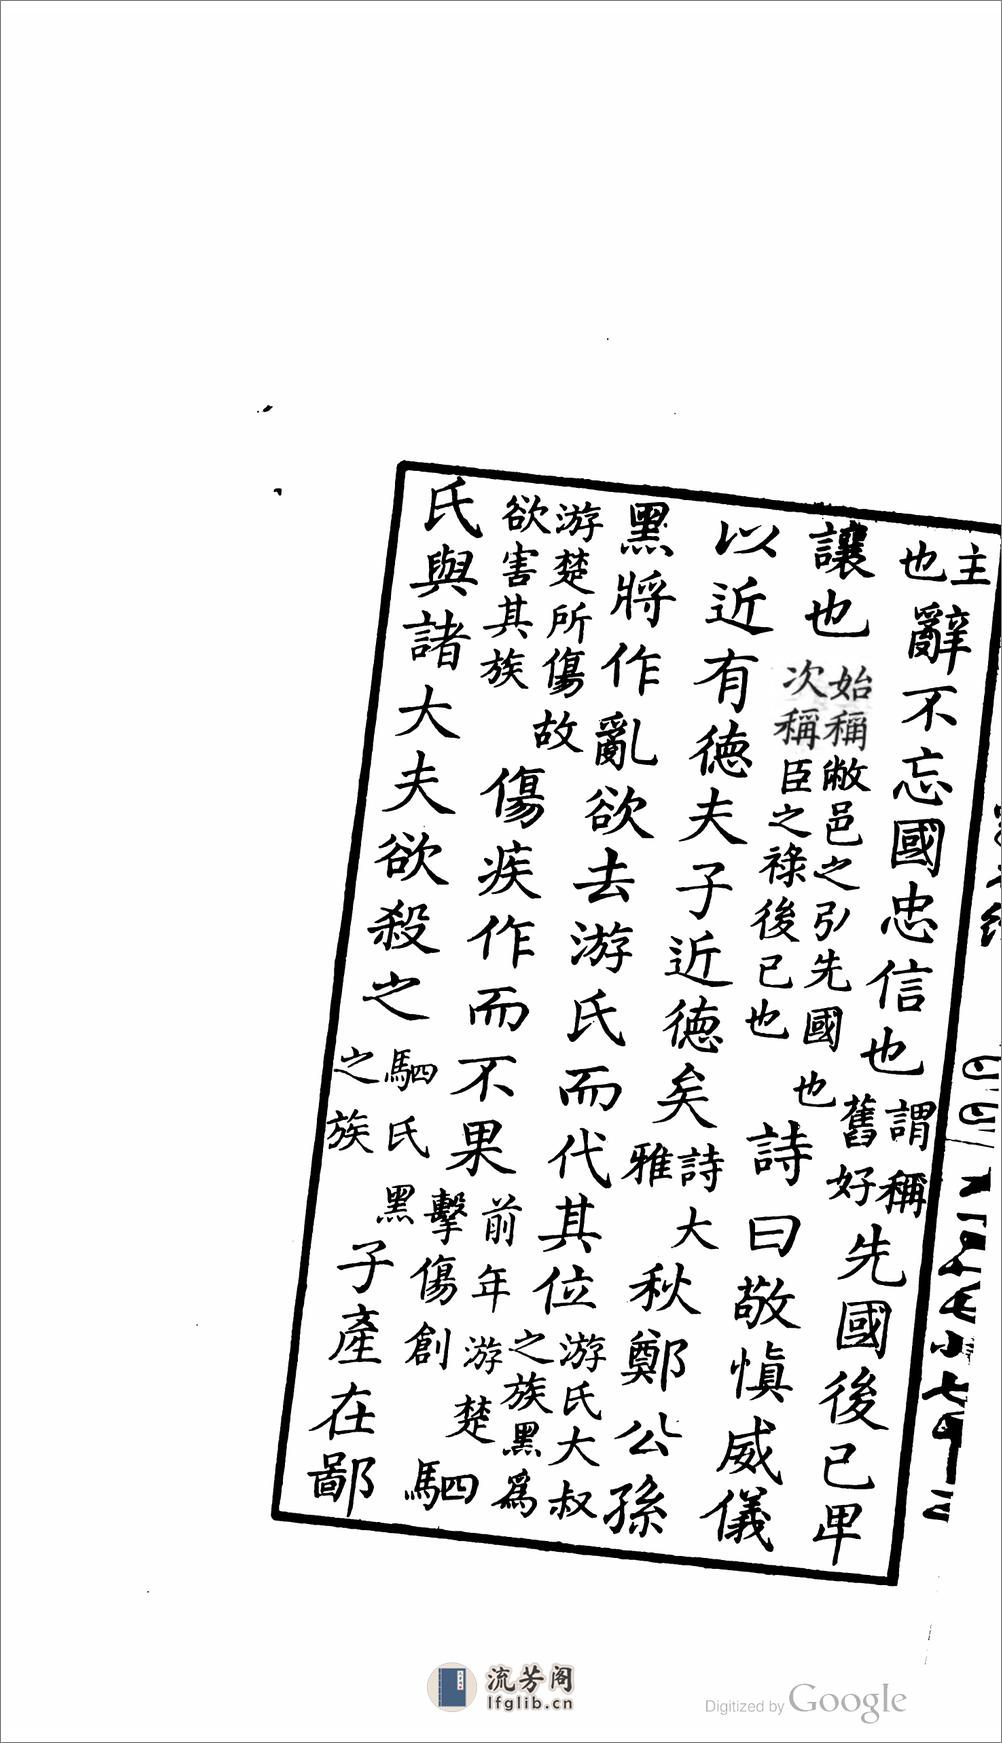 主也辭不忘國忠信也謂稱舊好先國後己卑
讓也始稱敝邑之引先國也次稱臣之祿後己也詩曰敬慎威儀
以近有德夫子近德矣詩大雅秋鄭公孫
黑將作亂欲去游氏而代其位游氏大叔之族黑爲
游楚所傷故欲害其族傷疾作而不果前年游楚擊傷創駟
氏與諸大夫欲殺之駟氏黑之族子產在鄙
流芳阁
lfglib.cn
Digitized by Google